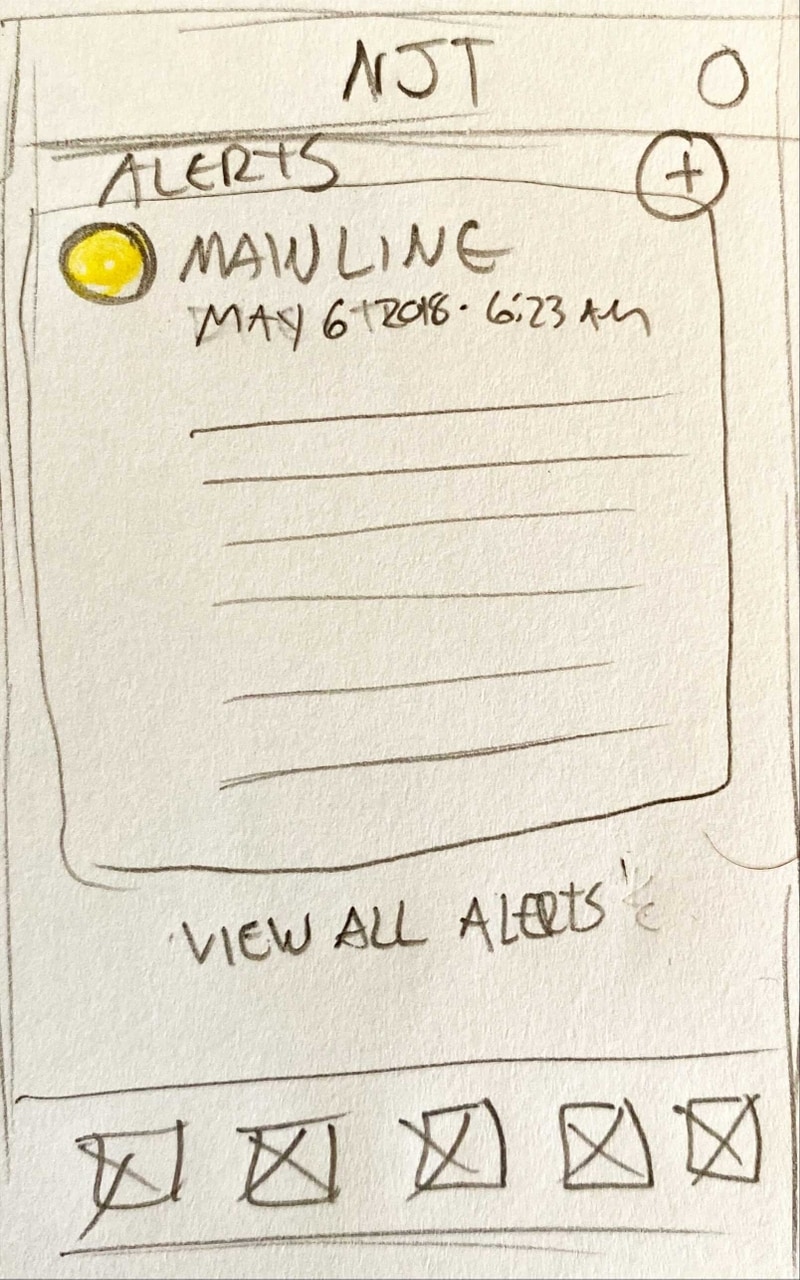 NJT
ALERTS +
MAIN LINE
MAY 6, 2018 · 6:23 AM
VIEW ALL ALERTS